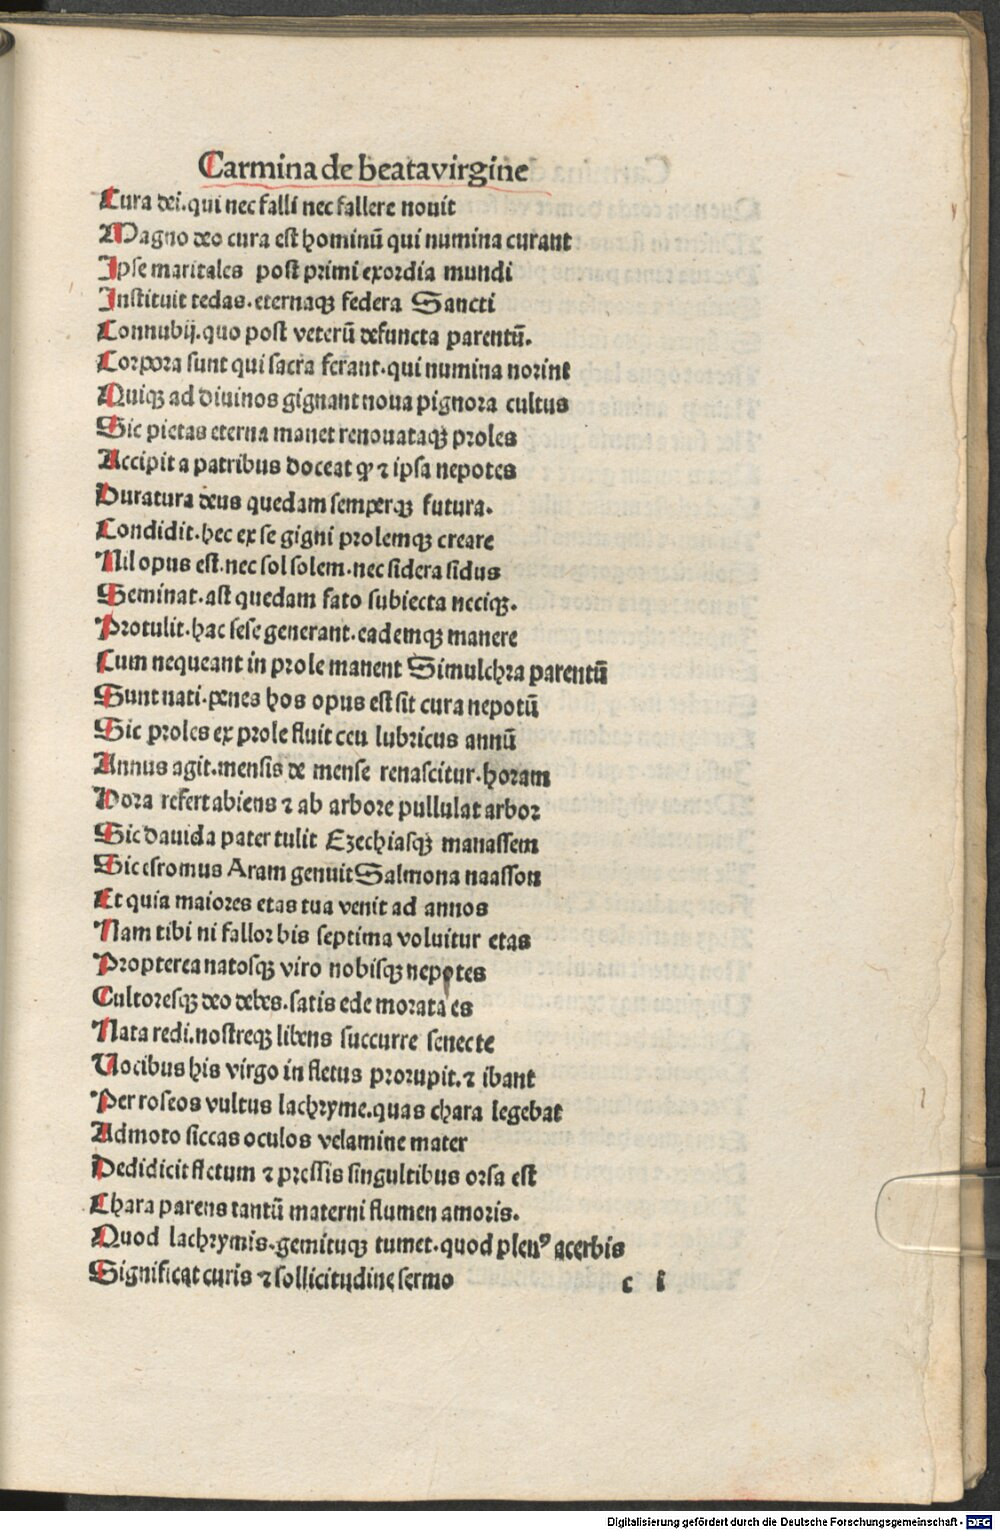 Carmina de beata virgine
Cura dei. qui nec falli nec fallere nouit
Magno deo cura est hominū qui numina curant
Ipse maritales post primi exordia mundi
Instituit tedas. eternaqꝫ federa Sancti
Connubij. quo post veterū defuncta parentū.
Corpora sunt qui sacra ferant. qui numina norint
Quiqꝫ ad diuinos gignant noua pignora cultus
Sic pietas eterna manet renouataqꝫ proles
Accipit a patribus doceat qͥ ⁊ ipsa nepotes
Duratura deus quedam semperqꝫ futura.
Condidit. hec ex se gigni prolemqꝫ creare
Nil opus est. nec sol solem. nec sidera sidus
Seminat. ast quedam fato subiecta neciqꝫ.
Protulit. hac sese generant. eademqꝫ manere
Cum nequeant in prole manent Simulchra parentū
Sunt nati. penes hos opus est sit cura nepotū
Sic proles ex prole fluit ceu lubricus annū
Annus agit. mensis de mense renascitur. horam
Hora refert abiens ⁊ ab arbore pullulat arbor
Sic dauida pater tulit Ezechiasqꝫ manassem
Sic esromus Aram genuit Salmona naasson
Et quia maiores etas tua venit ad annos
Nam tibi ni fallor bis septima voluitur etas
Propterea natosqꝫ viro nobisqꝫ nepotes
Cultoresqꝫ deo debes. satis ede morata es
Nata redi. nostreqꝫ libens succurre senecte
Uocibus his virgo in fletus prorupit. ⁊ ibant
Per roseos vultus lachryme. quas chara legebat
Admoto siccas oculos velamine mater
Dedidicit fletum ⁊ pressis singultibus orsa est
Chara parens tantū materni flumen amoris.
Quod lachrymis. gemituqꝫ tumet. quod plenꝰ acerbis
Significat curis ⁊ sollicitudine sermo
c i
Digitalisierung gefördert durch die Deutsche Forschungsgemeinschaft - DFG